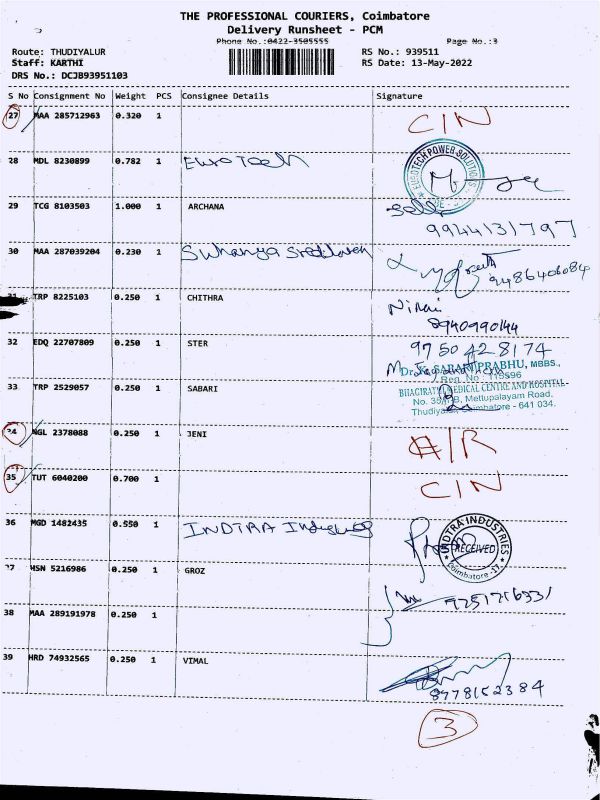 THE PROFESSIONAL COURIERS, Coimbatore
Delivery Runsheet - PCM
Phone No.:0422-3505555 Page No.:3
Route: THUDIYALUR RS No.: 939511
Staff: KARTHI RS Date: 13-May-2022
DRS No.: DCJB93951103
S No Consignment No Weight PCS Consignee Details Signature
27 MAA 285712963 0.320 1 C/N
28 MDL 8230899 0.782 1 Euro Tech
EUROTECH POWER SOLUTIONS
29 TCG 8103503 1.000 1 ARCHANA
9944131797
30 MAA 287039204 0.230 1 Suhanya
9486406084
31 TRP 8225103 0.250 1 CHITHRA
8940990144
32 EDQ 22707809 0.250 1 STER 9750428174
Dr. K. SABARI PRABHU, MBBS.,
Reg. No.
33 TRP 2529057 0.250 1 SABARI
MEDICAL CENTRE AND HOSPITAL
Mettupalayam Road,
Coimbatore - 641 034.
34 NGL 2378088 0.250 1 JENI
35 TUT 6040200 0.700 1 C/N
36 MGD 1482435 0.550 1 INDTRA Industries
INDTRA INDUSTRIES
RECEIVED
Coimbatore-17
37 HSN 5216986 0.250 1 GROZ
38 MAA 289191978 0.250 1
39 HRD 74932565 0.250 1 VIMAL
8778152384
3